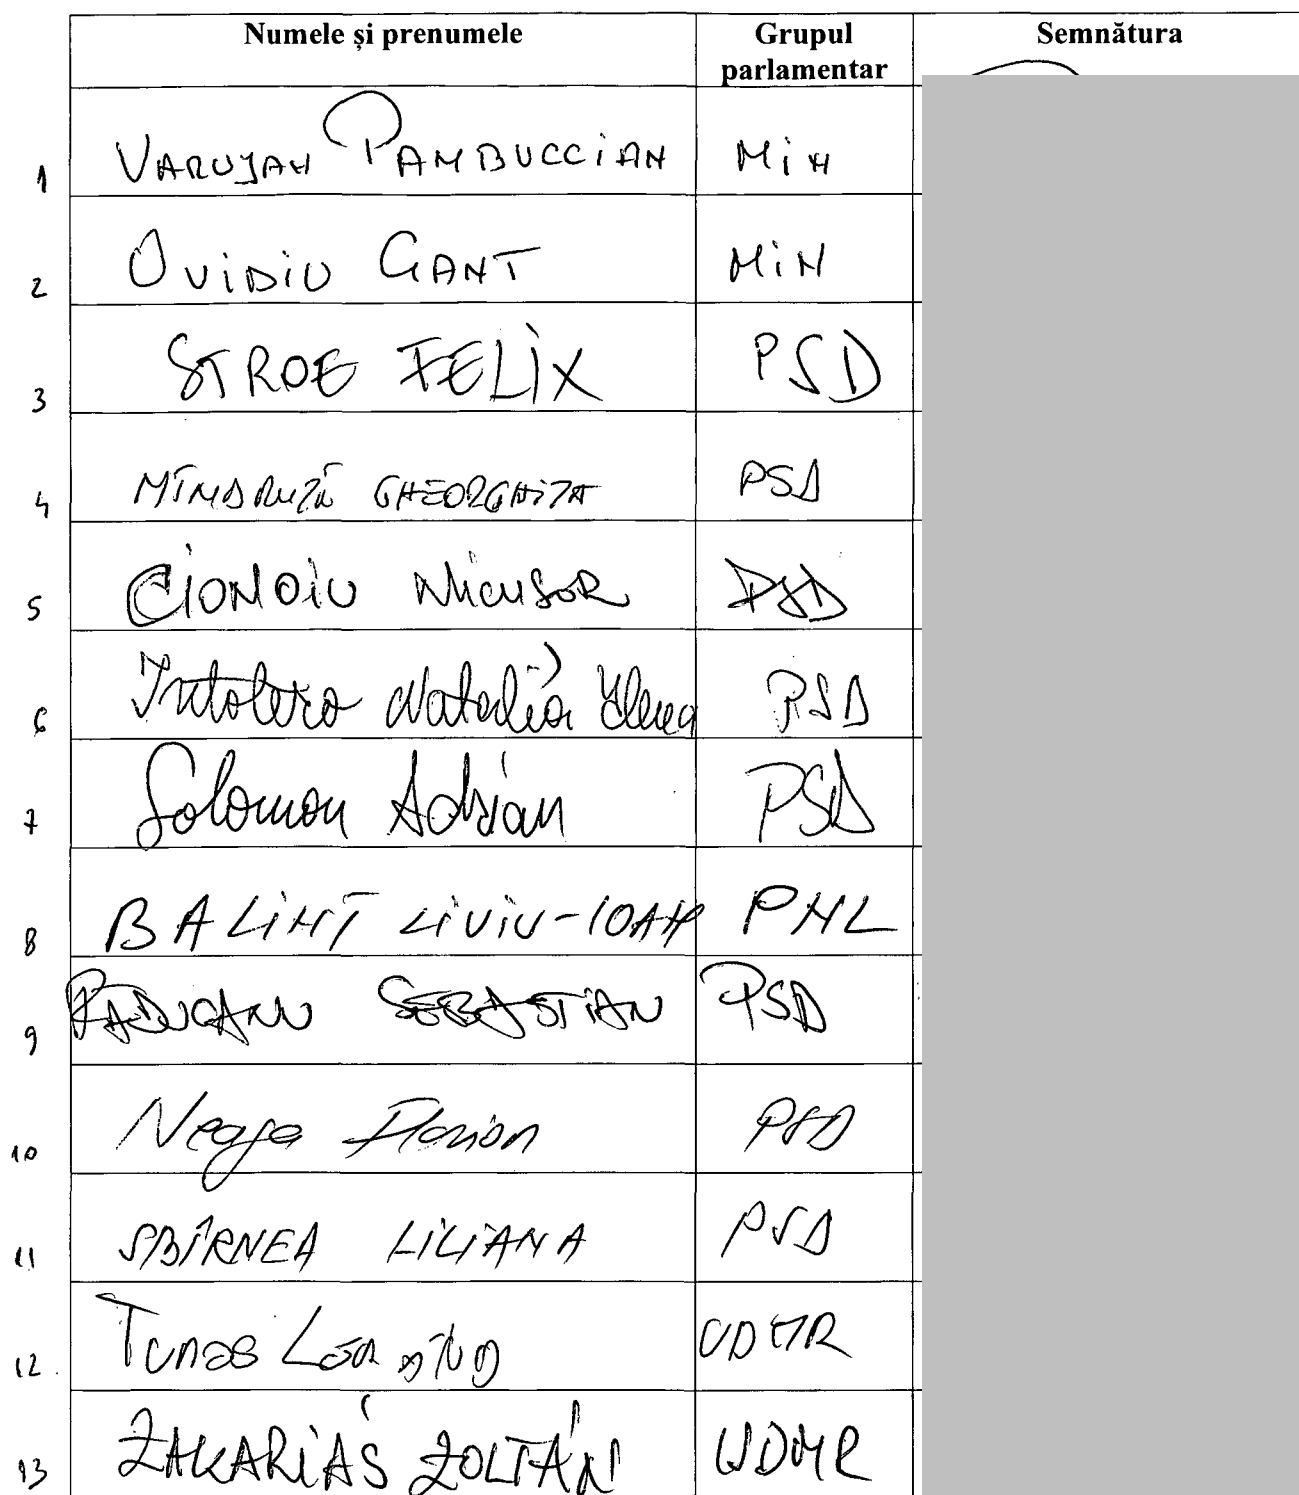 Numele și prenumele Grupul parlamentar Semnătura
1 VARUJAN PAMBUCCIAN MIN
2 OVIDIU GANT MIN
3 STROE FELIX PSD
4 MÎNDRUȚĂ GHEORGHIȚA PSD
5 CIONOIU Nicușor PSD
6 Intotero Natalia Elena PSD
7 Solomon Adrian PSD
8 BALINT LIVIU-IOAN PNL
9 RADUCANU SEBASTIAN PSD
10 Neaga Florian PSD
11 SBÎRNEA LILIANA PSD
12. UDMR
13 ZAKARIÁS ZOLTÁN UDMR